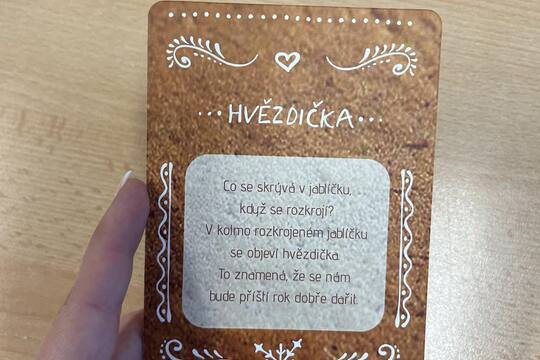 HVĚZDIČKA
Co se skrývá v jablíčku,
když se rozkrojí?
V kolmo rozkrojeném jablíčku
se objeví hvězdička.
To znamená, že se nám
bude příští rok dobře dařit.